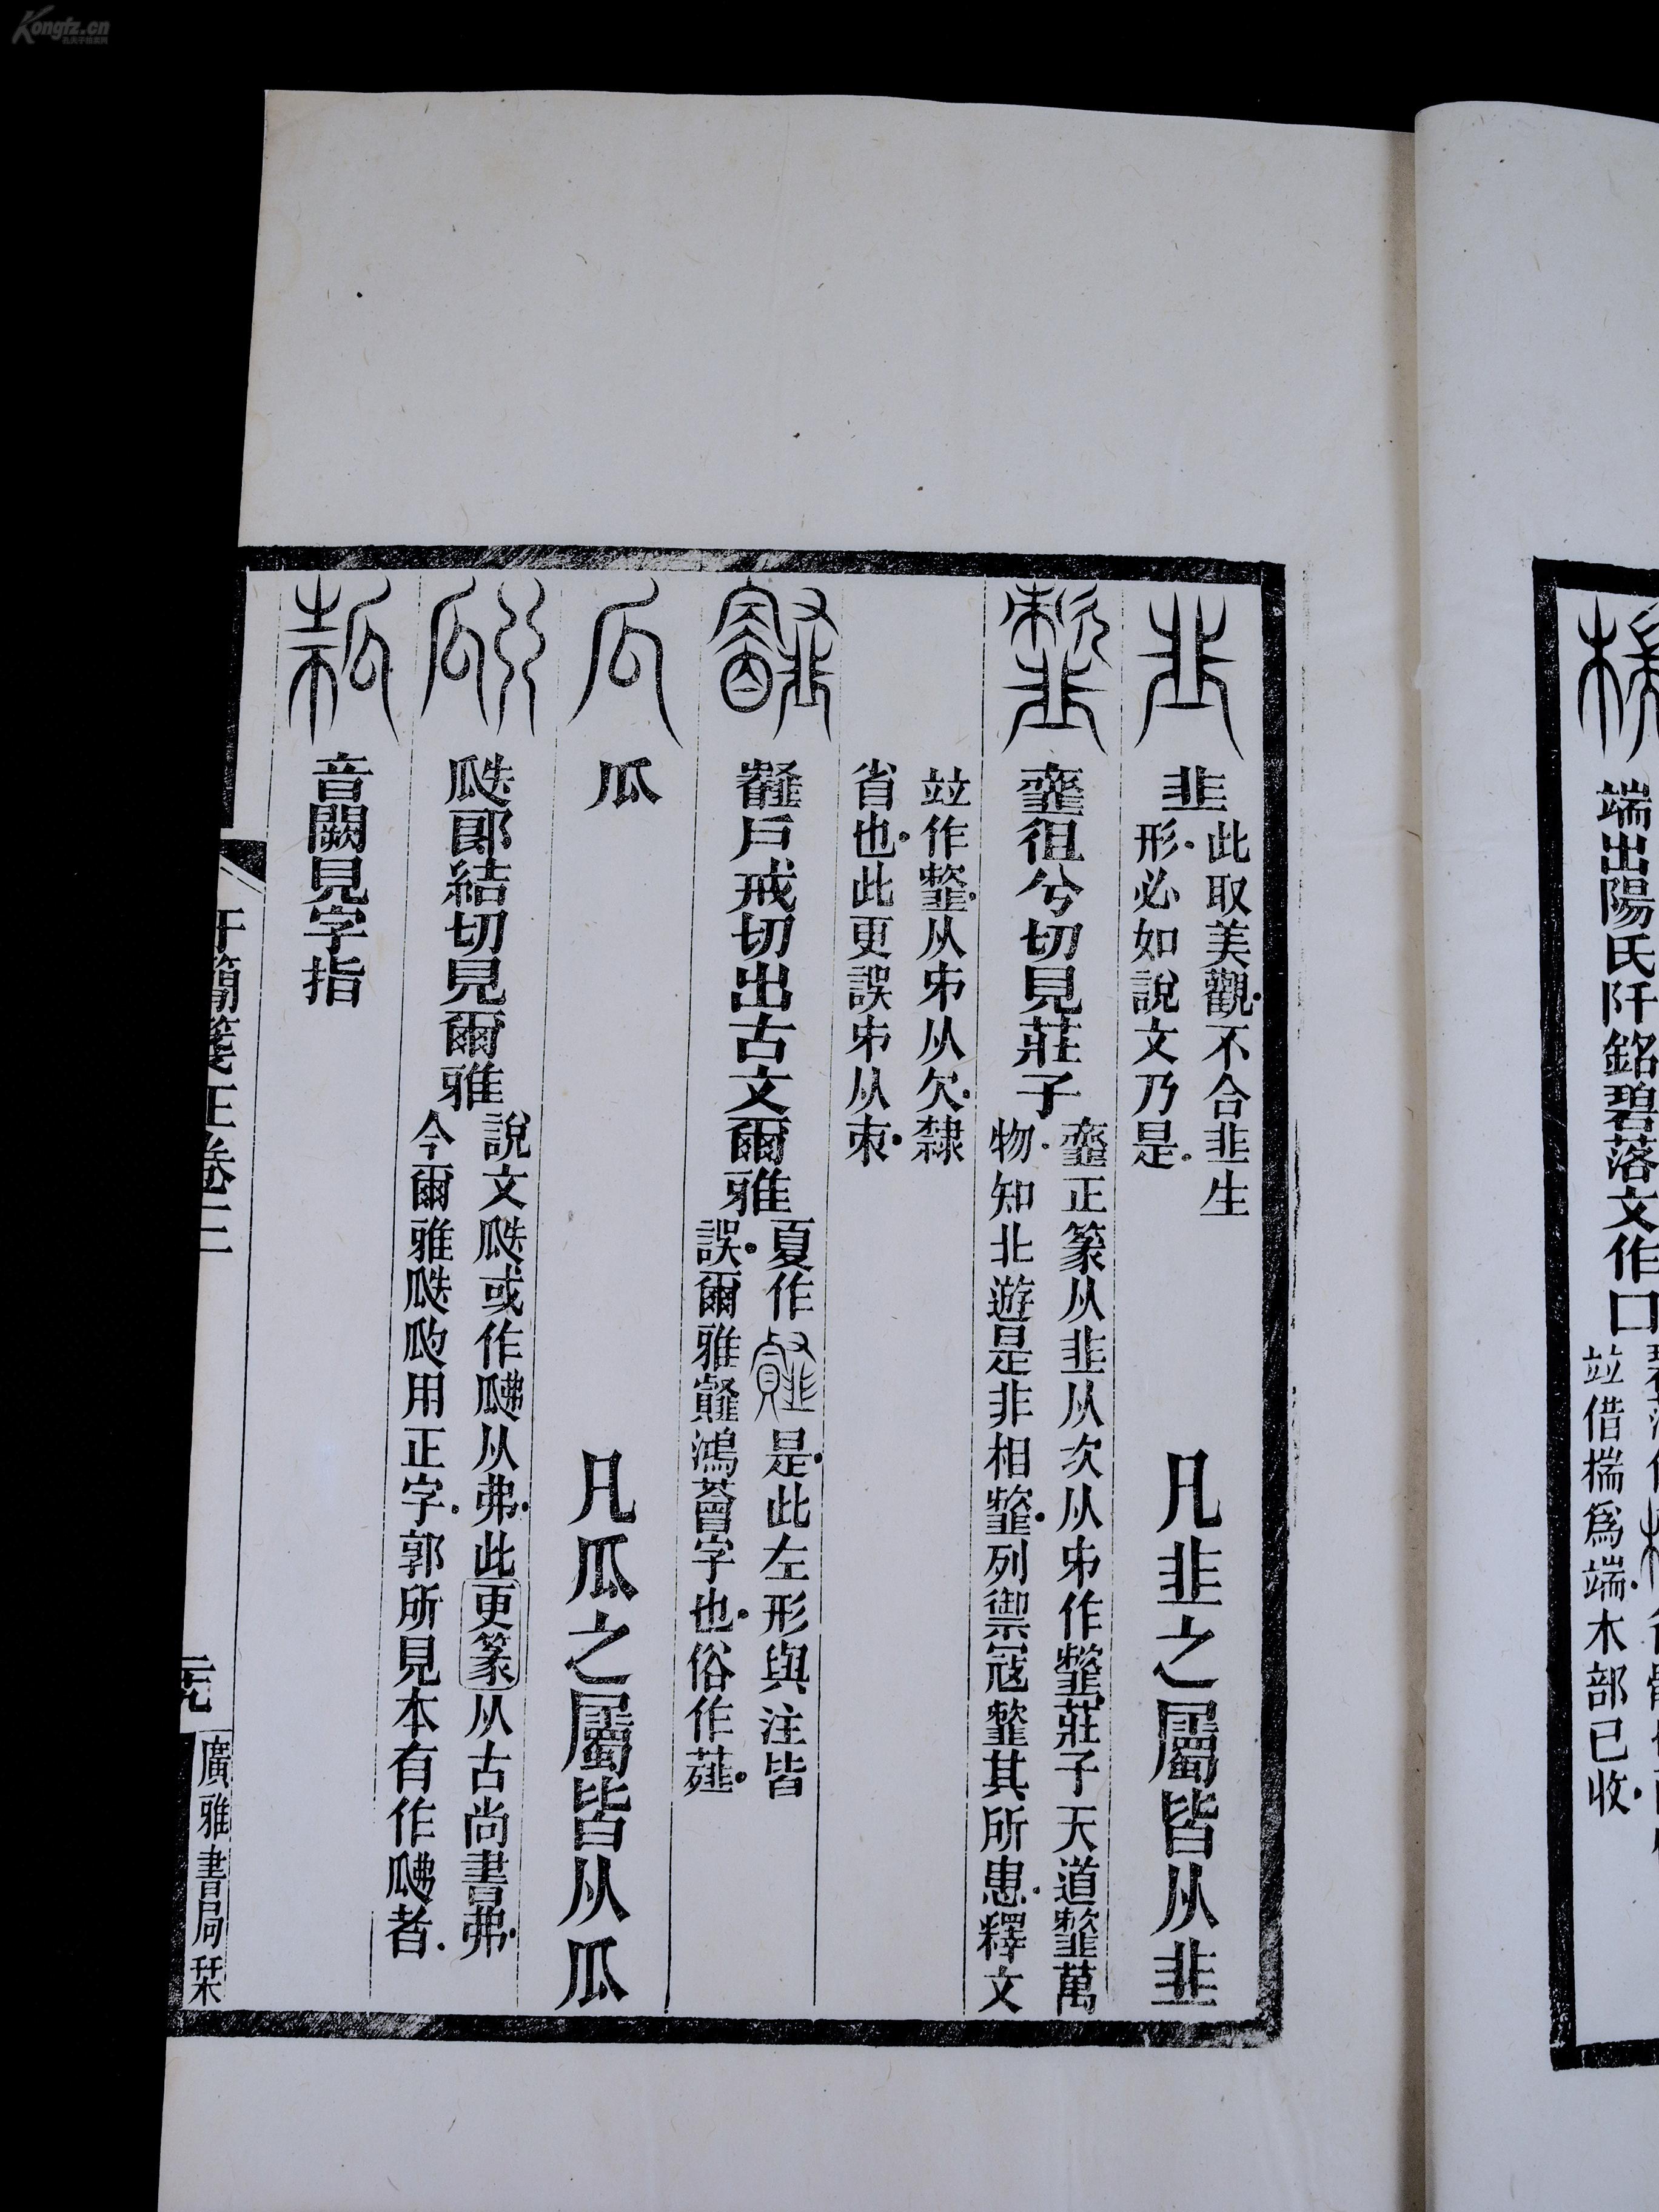 端出陽氏阡銘碧落文作口
竝借椯爲端木部已收
韭 此取美觀不合韭生
形必如說文乃是 凡韭之屬皆从韭
䪠徂兮切見莊子 䪠正篆从韭从次从𠂔作䪢莊子天道䪢萬
物知北遊是非相䪢列禦寇䪢其所患釋文
竝作䪢从𠂔从欠隸
省也此更誤𠂔从朿
戶戒切出古文爾雅 夏作
是此左形與注皆
誤爾雅䪥鴻薈字也俗作薤
瓜 凡瓜之屬皆从瓜
瓞郎結切見爾雅 說文瓞或作𤬏从弗此更篆从古尚書弗
今爾雅瓞瓝用正字郭所見本有作𤬏者
音闕見字指
汗簡箋正卷三
元
廣雅書局栞
Kongfz.cn